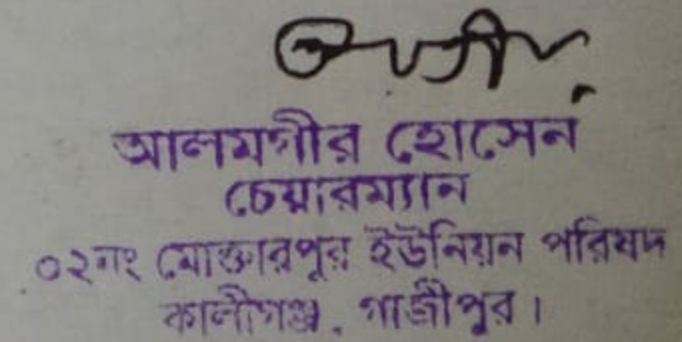 আলমগীর হোসেন
চেয়ারম্যান
০২নং মোক্তারপুর ইউনিয়ন পরিষদ
কালীগঞ্জ, গাজীপুর।